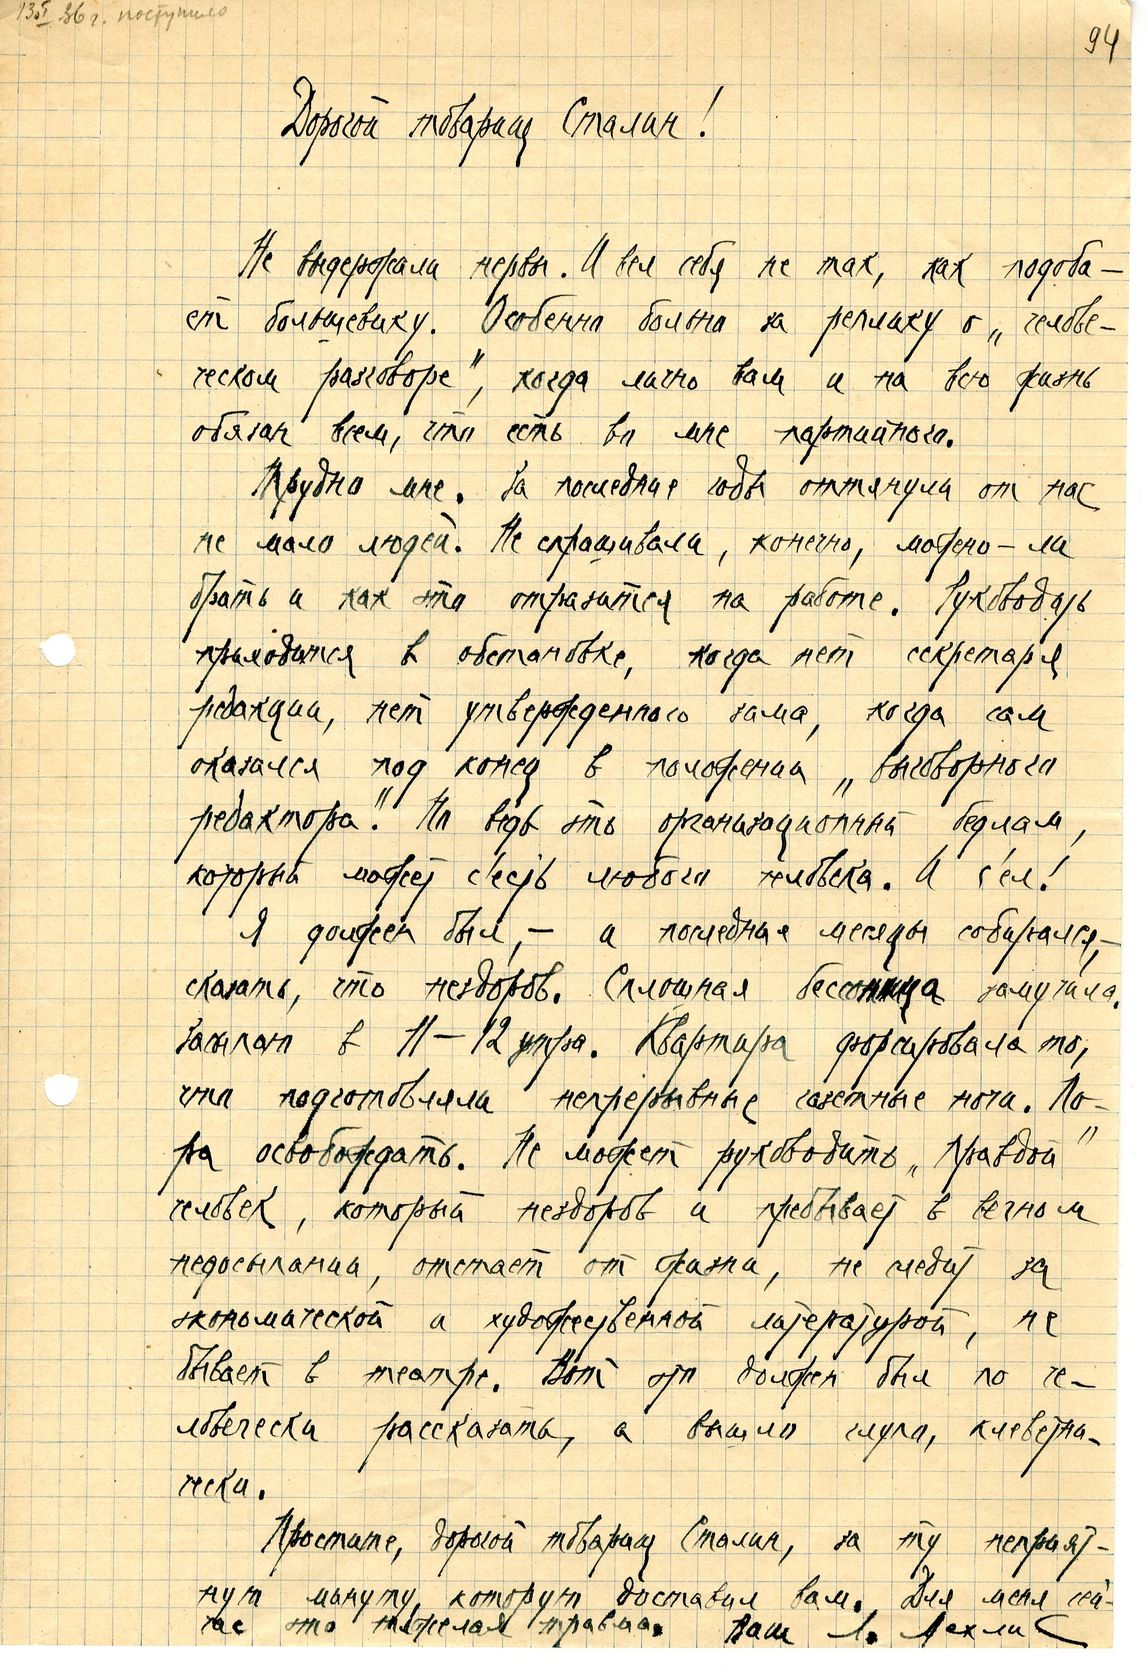 13/I 36 г. поступило
94
Дорогой товарищ Сталин!
Не выдержали нервы. И вел себя не так, как подоба-
ет большевику. Особенно больно за реплику о „челове-
ческом разговоре", когда лично вам и на всю жизнь
обязан всем, что есть во мне партийного.
Трудно мне. За последние годы оттянули от нас
не мало людей. Не спрашивали, конечно, можно-ли
брать и как это отразится на работе. Руководить
приходится в обстановке, когда нет секретаря
редакции, нет утвержденного зама, когда сам
оказался под конец в положении „выговорного
редактора". Но ведь это организационный бедлам,
который может с'есть любого человека. И с'ел!
Я должен был, — и последние месяцы собирался, —
сказать, что нездоров. Сплошная бессонница замучила.
Засыпаю в 11 — 12 утра. Квартира форсировала то,
что подготовляли непрерывные газетные ночи. По-
ра освобождать. Не может руководить „Правдой"
человек, который нездоров и пребывает в вечном
недосыпании, отстает от жизни, не следит за
экономической и художественной литературой, не
бывает в театре. Вот это должен был по че-
ловечески рассказать, а вышло глупо, клеветни-
чески.
Простите, дорогой товарищ Сталин, за ту неприят-
ную минуту, которую доставил вам. Для меня сей-
час это тяжелая травма. Ваш Л. Мехлис